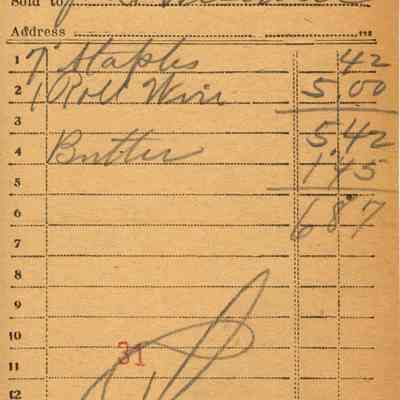 Sold to
Address
1 7# Staples 42
2 1 Roll Wire 5 00
3 5 42
4 Butter 1 45
5
6 6 87
7
8
9
10
31
11
12